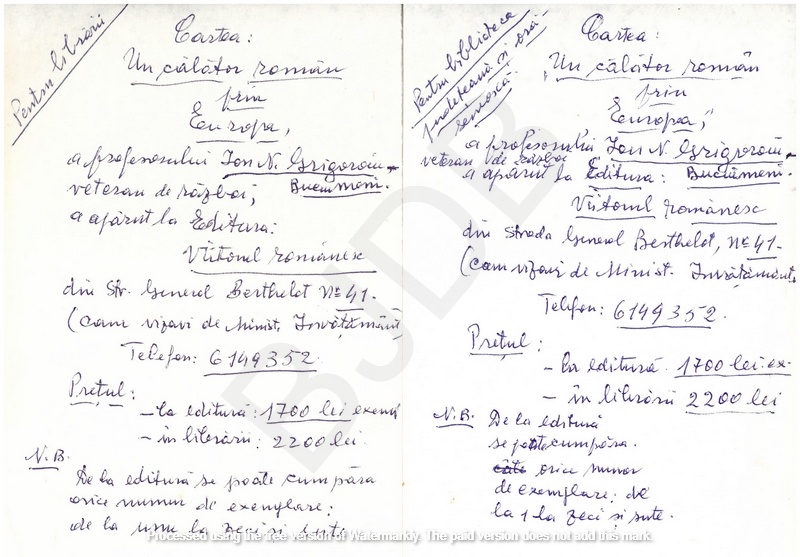 Pentru librării
Cartea:
Un călător român
prin
Europa,
a profesorului Ion N. Grigorom-
veteran de război, Bucumeni.
a apărut la Editura:
Viitorul românesc
din Str. General Berthelot № 41.
(cam vizavi de Minist. Învățământ)
Telefon: 6149352.
Prețul:
- la editură: 1700 lei exempl
- în librării: 2200 lei.
N.B.
De la editură se poate cumpăra
orice număr de exemplare;
de la unu la zeci și sute.
Pentru biblioteca
județeană și oră-
șenească.
Cartea:
"Un călător român
prin
Europa,"
a profesorului Ion N. Grigorom-
veteran de război Bucumeni.
a apărut la Editura:
Viitorul românesc
din strada General Berthelot, № 41.
(cam vizavi de Minist. Învățământ
Telefon: 6149352.
Prețul:
- la editură. 1700 lei ex-
- în librării 2200 lei
N.B. De la editură
se poate cumpăra.
câte orice număr
de exemplare; de
la 1 la zeci și sute.
BJDB
Processed using the free version of Watermarkly. The paid version does not add this mark.